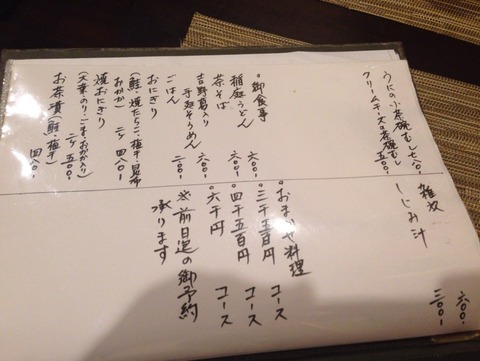 うにの小茶碗むし 七八〇、
クリームチーズの茶碗むし 五〇〇、
。御食事
稲庭うどん 六〇〇、
茶そば 六〇〇、
吉野葛入り
手延そうめん 六〇〇、
ごはん 二〇〇、
おにぎり
(鮭・焼たらこ・梅干・昆布
おかか) 二ケ 四八〇、
焼おにぎり
(大葉のり・ごま・おかか入り)
二ケ 五〇〇、
お茶漬(鮭・梅干) 四八〇、
雑炊 六〇〇、
しじみ汁 三〇〇、
。おまかせ料理
。三千五百円 コース
。四千五百円 コース
。六千円 コース
※前日迄の御予約
承ります